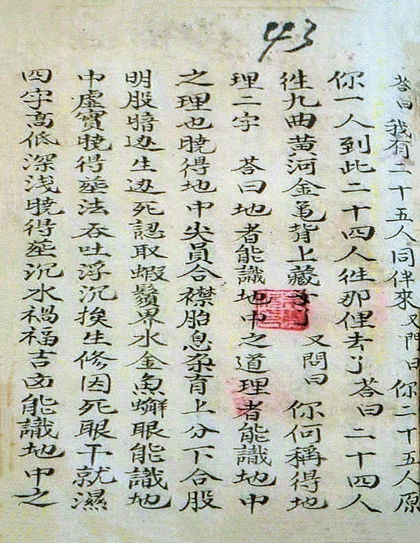 43
答曰我有二十五人同伴來 又門曰 你二十五人原
你一人到此二十四人徃那俚去了 答曰 二十四人
徃九曲黃河金亀背上藏了 又問曰 你何稱得地
理二字 答曰地者能識地中之道理者能識地中
之理也曉得地中尖員合襟胎息孕育上分下合股
明股暗边生边死認取蝦鬚界水金魚蠏眼能識地
中虛實曉得塟法吞吐浮沉挨生修因死眼干就濕
四字高低深浅曉得塟沉水禍福吉凶能識地中之